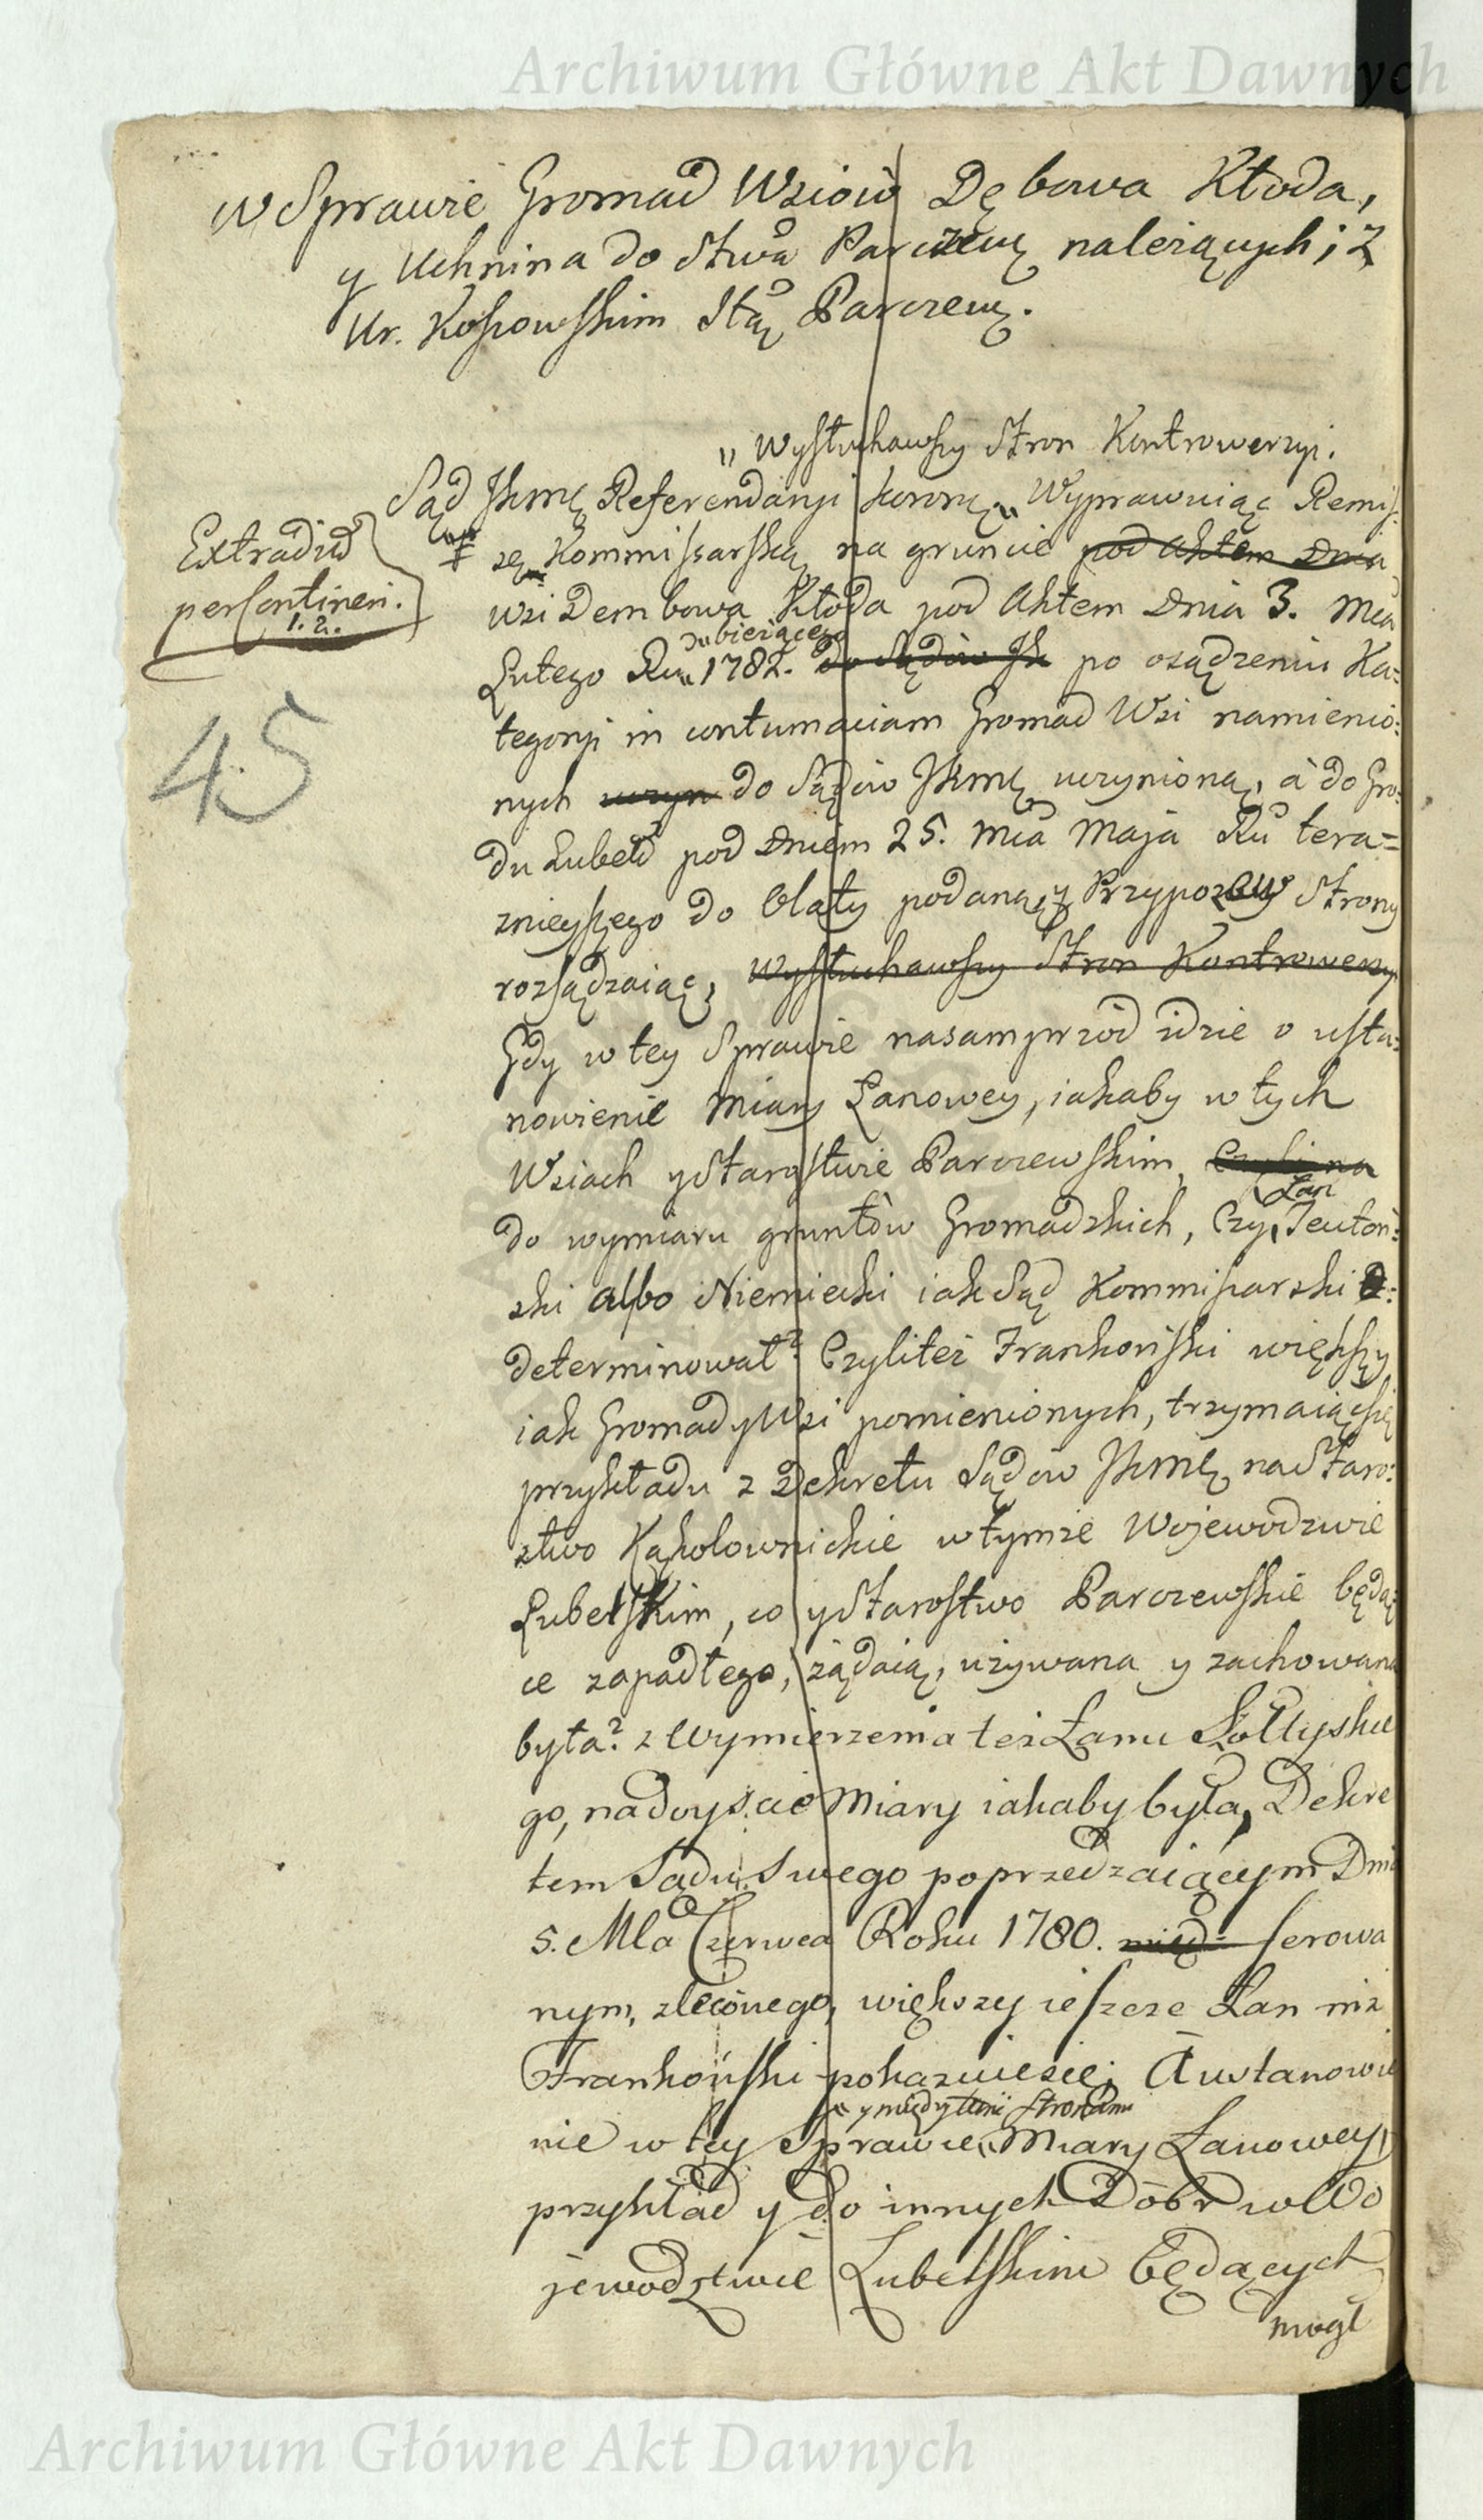 Archiwum Główne Akt Dawnych
w Sprawie Gromad Wsiów Dębowa Kłoda,
y Uchnina do Stwa Parczew należących; z
Ur. Kossowskim Stą Parczew.
„ Wysłuchawszy Stron Kontrowersyi.
Sąd JKmę Referendaryi Koronę „ Wyprawuiąc Remis-
sę Kommissarską na gruncie pod Aktem Dnia
Extradid
per Continen.
1. 2.
wsi Dembowa Kłoda pod Aktem Dnia 3. Mca
du bieżącego
Lutego Ru 1782. do Sądów Jk po osądzeniu Ka:
45
tegoryi in contumaciam Gromad Wsi namienio:
nych uczyn do Sądów JKmę uczynioną, à do Gro:
du Lubel pod Dniem 25. Mca Maja Ru tera=
znieyszego do Oblaty podaną, y Przypozew Strony
rozsądzaiąc, Wysłuchawszy Stron Kontrowersyi
Gdy w tey Sprawie nasamprzod idzie o usta:
nowienie Miary Łanowey, iakaby w tych
Wsiach y Starostwie Parczewskim, Czyli na
Łan
do wymiaru gruntów Gromadzkich, Czy Teutoń:
ski albo Niemiecki iak Sąd Kommissarski
determinował? Czyliteż Frankoński większy
iak Gromady Wsi pomienionych, trzymaiąc się
przykładu z Dekretu Sądów JKmę na Staro:
stwo Kąkolownickie w tymże Wojewodzwie
Lubelskim, co y Starostwo Parczewskie będą:
ce zapadłego, żądaią, używana y zachowana
była? z Wymierzenia też Łanu Sołtyskie
go, nadoyscie Miary iakaby była, Dekre
tem Sądu Swego poprzedzaiącym Dnia
5. Mca Czerwca Roku 1780. międ ferowa
nym, zleconego, większy ieszcze Łan niż
Frankoński pokazuie się; A ustanowie
y międytemi Stronami
nie w tey Sprawie Miary Łanowey,
przykład y do innych Dóbr w Wo
jewodztwie Lubelskim będących
mogł
Archiwum Główne Akt Dawnych